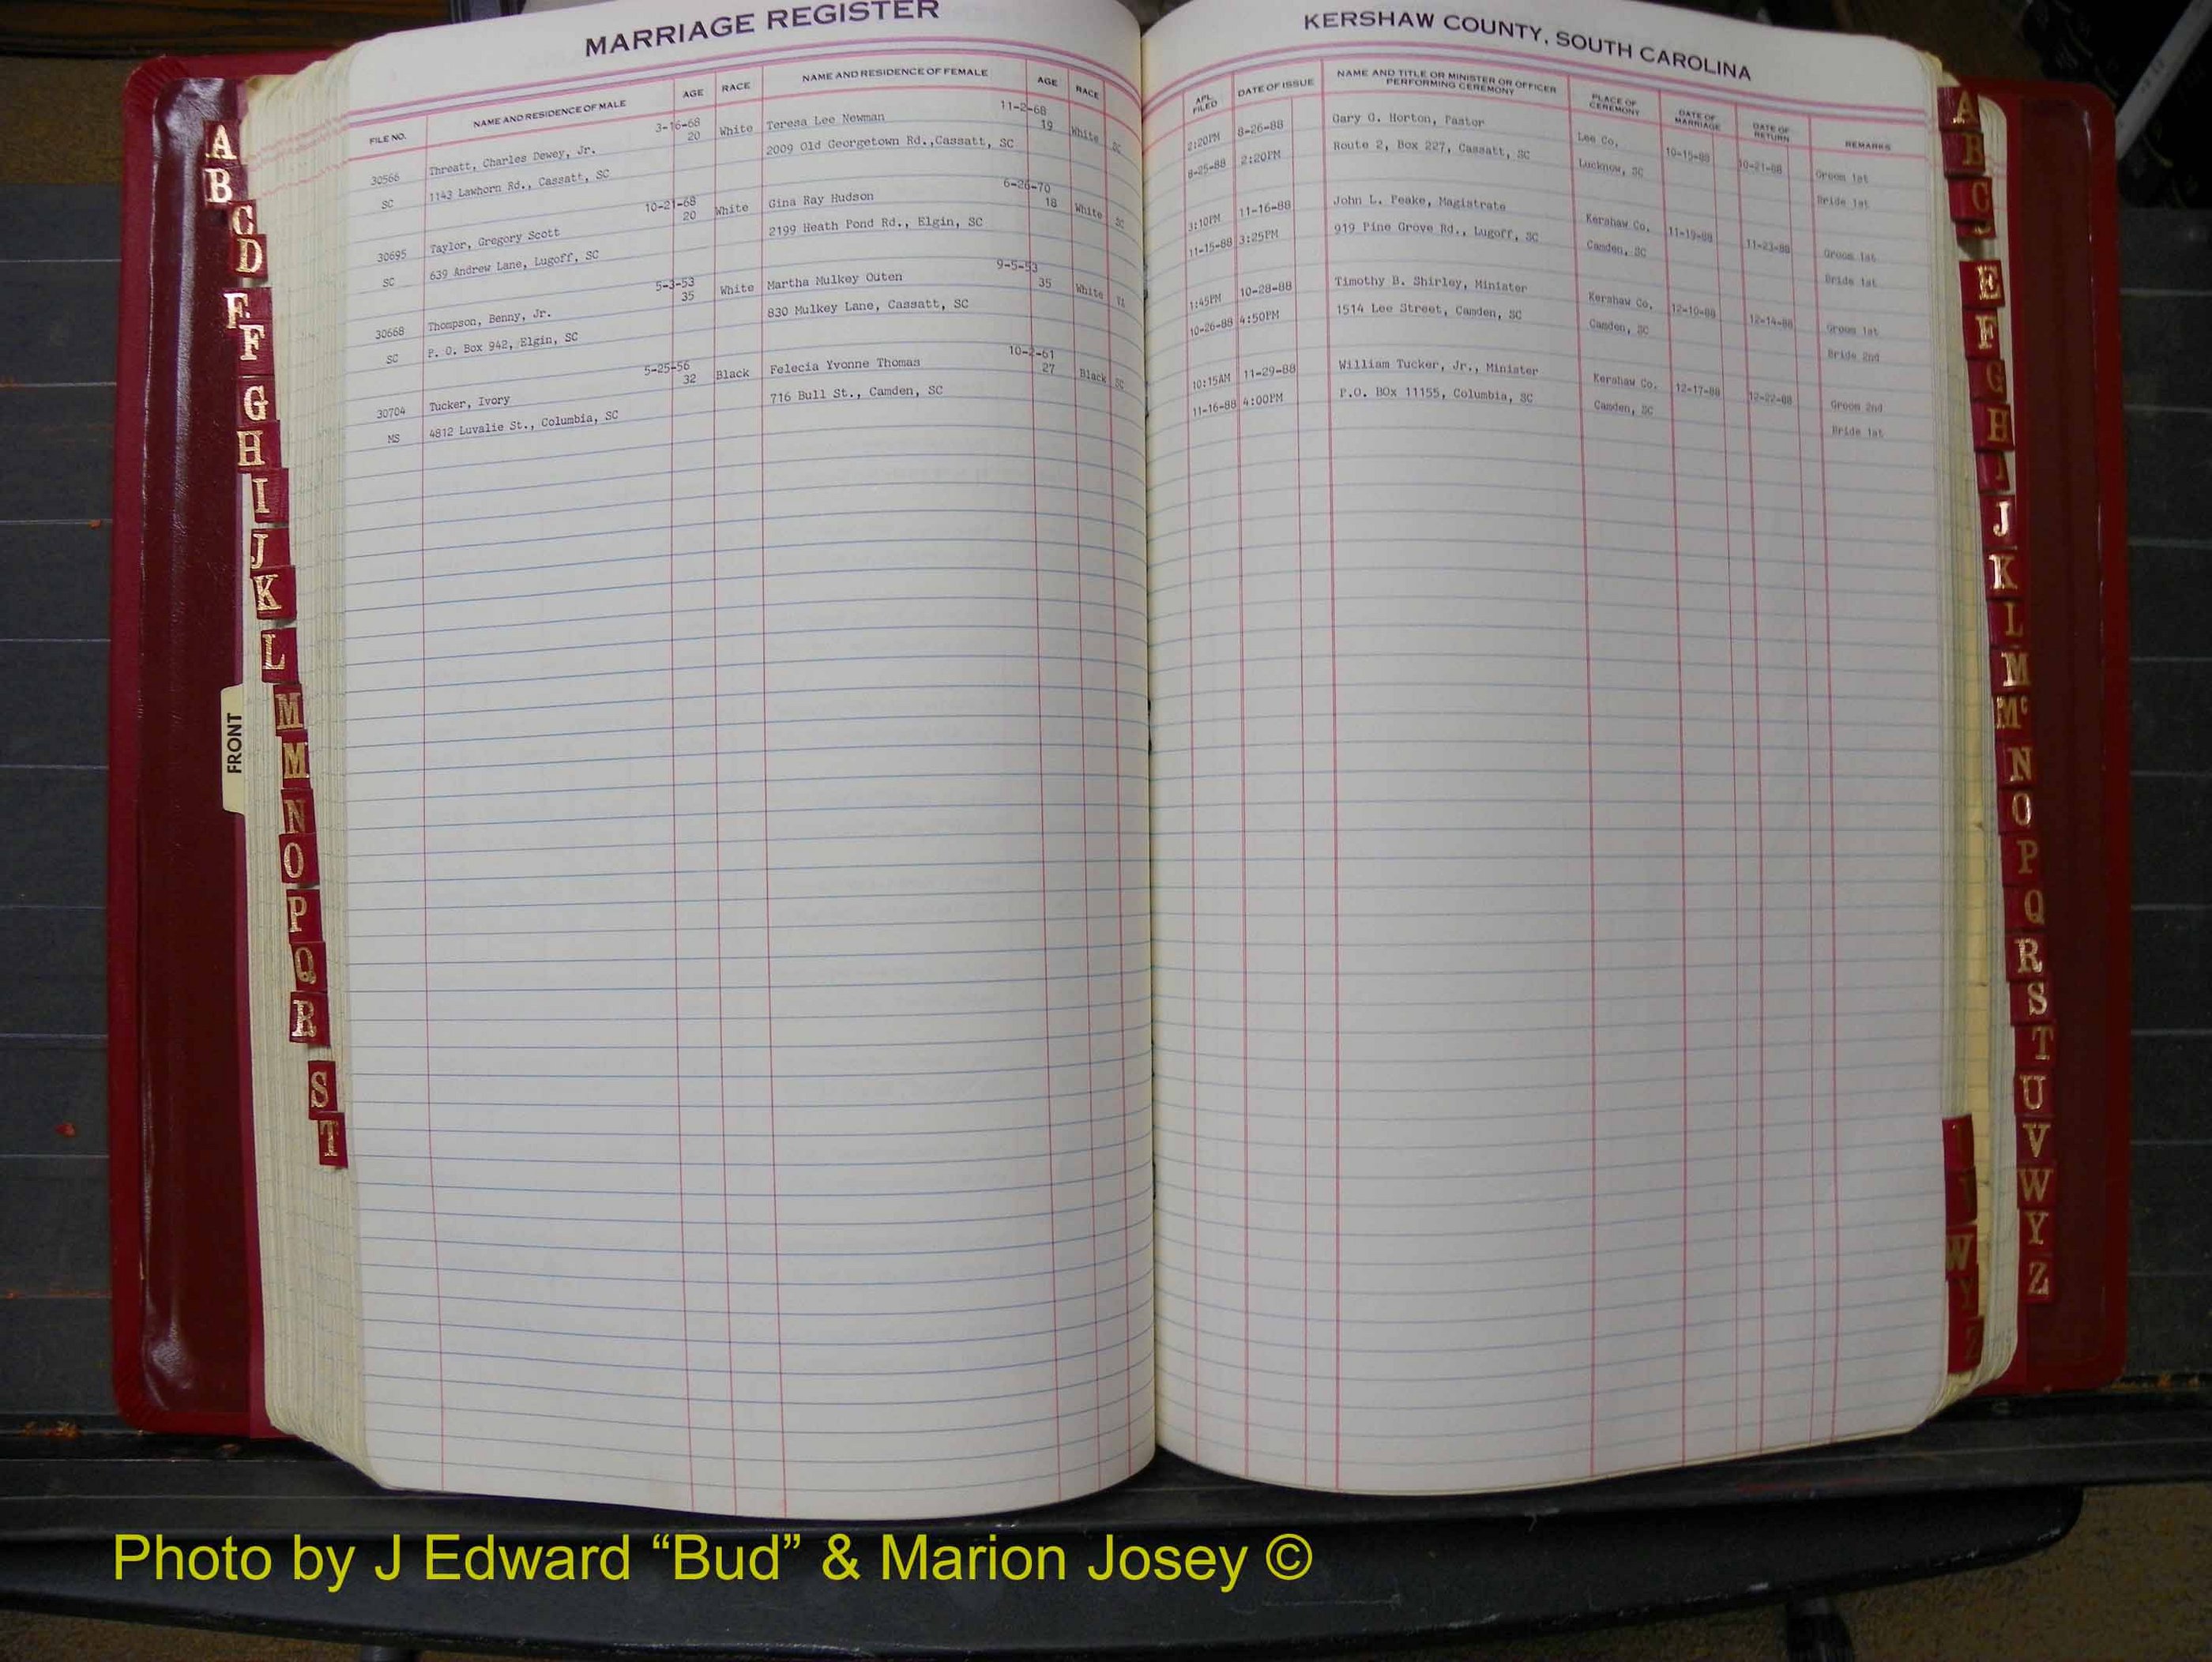 MARRIAGE REGISTER
FILE NO. NAME AND RESIDENCE OF MALE AGE RACE NAME AND RESIDENCE OF FEMALE AGE RACE
3-16-68 11-2-68
30566 Threatt, Charles Dewey, Jr. 20 White Teresa Lee Newman 19 White SC
SC 1143 Lawhorn Rd., Cassatt, SC 2009 Old Georgetown Rd.,Cassatt, SC
10-21-68 6-26-70
30695 Taylor, Gregory Scott 20 White Gina Ray Hudson 18 White SC
SC 639 Andrew Lane, Lugoff, SC 2199 Heath Pond Rd., Elgin, SC
5-3-53 9-5-53
30668 Thompson, Benny, Jr. 35 White Martha Mulkey Outen 35 White VA
SC P. O. Box 942, Elgin, SC 830 Mulkey Lane, Cassatt, SC
5-25-56 10-2-61
30704 Tucker, Ivory 32 Black Felecia Yvonne Thomas 27 Black SC
MS 4812 Luvalie St., Columbia, SC 716 Bull St., Camden, SC
KERSHAW COUNTY, SOUTH CAROLINA
APL. FILED DATE OF ISSUE NAME AND TITLE OR MINISTER OR OFFICER PERFORMING CEREMONY PLACE OF CEREMONY DATE OF MARRIAGE DATE OF RETURN REMARKS
2:20PM 8-26-88 Gary G. Horton, Pastor Lee Co. 10-15-88 10-21-88 Groom 1st
8-25-88 2:20PM Route 2, Box 227, Cassatt, SC Lucknow, SC Bride 1st
3:10PM 11-16-88 John L. Peake, Magistrate Kershaw Co. 11-19-88 11-23-88 Groom 1st
11-15-88 3:25PM 919 Pine Grove Rd., Lugoff, SC Camden, SC Bride 1st
1:45PM 10-28-88 Timothy B. Shirley, Minister Kershaw Co. 12-10-88 12-14-88 Groom 1st
10-26-88 4:50PM 1514 Lee Street, Camden, SC Camden, SC Bride 2nd
10:15AM 11-29-88 William Tucker, Jr., Minister Kershaw Co. 12-17-88 12-22-88 Groom 2nd
11-16-88 4:00PM P.O. BOx 11155, Columbia, SC Camden, SC Bride 1st
A
B
C
D
E
F
G
H
I
J
K
L
M
M
N
O
P
Q
R
S
T
FRONT
A
B
C
E
F
G
H
I
J
K
L
M
Mc
N
O
P
Q
R
S
T
U
V
W
Y
Z
W
Y
Z
Photo by J Edward “Bud” & Marion Josey ©